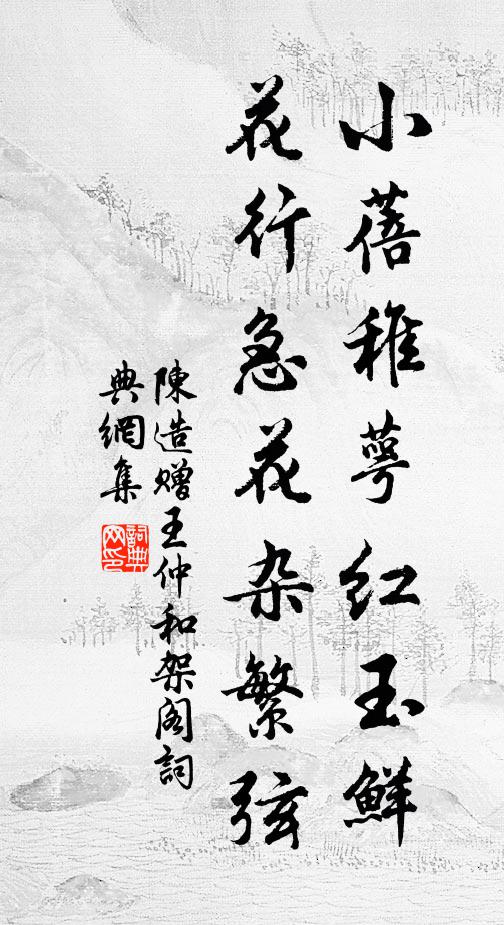 小蓓稚萼红玉鮮
花行急花杂繁弦
陳造贈王仲和架阁詞
典網集
詞典网印